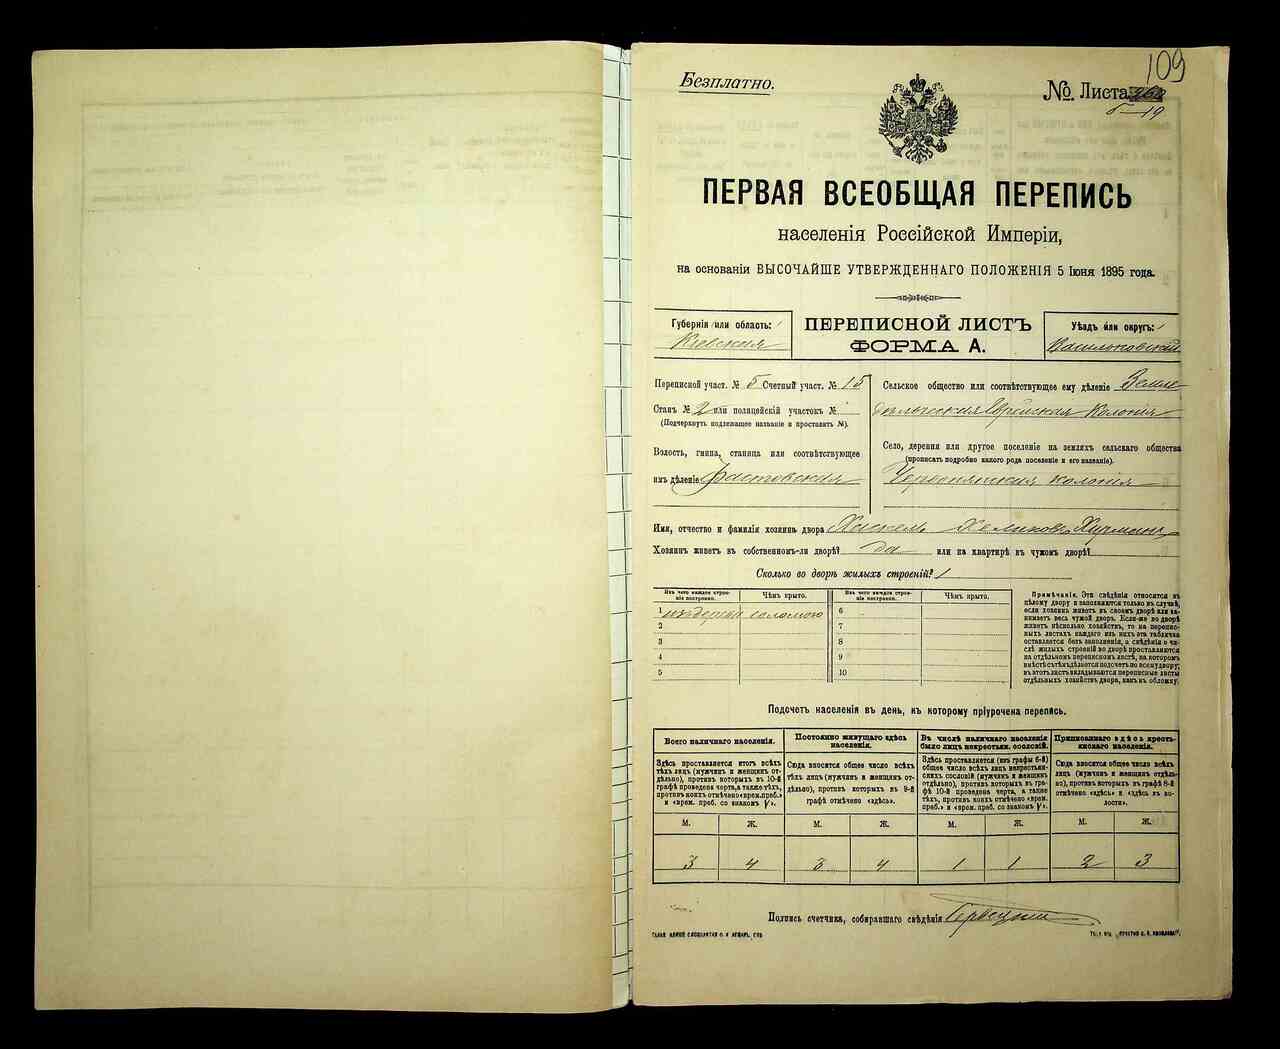 109
Безплатно.
№ Листа
ПЕРВАЯ ВСЕОБЩАЯ ПЕРЕПИСЬ
населенія Россійской Имперіи,
на основаніи ВЫСОЧАЙШЕ УТВЕРЖДЕННАГО ПОЛОЖЕНІЯ 5 Іюня 1895 года.
Губернія или область:
Кіевская
ПЕРЕПИСНОЙ ЛИСТЪ
ФОРМА А.
Уѣздъ или округъ:
Васильковскій
Переписной участ. № 5 Счетный участ. № 15
Станъ № 2 или полицейскій участокъ №
(Подчеркнуть подлежащее названіе и проставить №).
Волость, гмина, станица или соотвѣтствующее
имъ дѣленіе Фастовская
Сельское общество или соотвѣтствующее ему дѣленіе Земле
дѣльческая Еврейская Колонія
Село, деревня или другое поселеніе на земляхъ сельскаго общества
(прописать подробно какого рода поселеніе и его названіе).
Червонянская колонія
Имя, отчество и фамилія хозяина двора
Хозяинъ живетъ въ собственномъ-ли дворѣ? да или на квартирѣ въ чужомъ дворѣ?
Сколько во дворѣ жилыхъ строеній? 1
Изъ чего каждое строеніе построено.
Чѣмъ крыто.
Изъ чего каждое строеніе построено.
Чѣмъ крыто.
1 изъ дерева соломою 6
2 7
3 8
4 9
5 10
Примѣчаніе. Эта свѣдѣнія относятся къ
цѣлому двору и заполняются только въ случаѣ,
если хозяинъ живетъ въ своемъ дворѣ или занимаетъ
весь чужой дворъ. Если-же во дворѣ
живетъ нѣсколько хозяйствъ, то на переписныхъ
листахъ каждаго изъ нихъ эта табличка
оставляется безъ заполненія, а свѣдѣнія о числѣ
жилыхъ строеній во дворѣ проставляются
на отдѣльномъ переписномъ листѣ, на которомъ
вмѣстѣ съ тѣмъ дѣлается подсчетъ по всему двору;
въ этотъ листъ вкладываются переписные листы
отдѣльныхъ хозяйствъ двора, какъ въ обложку.
Подсчетъ населенія въ день, къ которому пріурочена перепись.
Всего наличнаго населенія.
Здѣсь проставляется итогъ всѣхъ
тѣхъ лицъ (мужчинъ и женщинъ отдѣльно),
противъ которыхъ въ 10-й
графѣ проведена черта, а также тѣхъ,
противъ коихъ отмѣчено «врем. преб.»
и «врем. преб. со знакомъ V».
Постоянно живущаго здѣсь
населенія.
Сюда вносится общее число всѣхъ
тѣхъ лицъ (мужчинъ и женщинъ отдѣльно),
противъ которыхъ въ 9-й
графѣ отмѣчено «здѣсь».
Въ числѣ наличнаго населенія
было лицъ некрестьян. сословій.
Здѣсь проставляется (изъ графы 6-й)
общее число всѣхъ лицъ некрестьянскихъ
сословій (мужчинъ и женщинъ
отдѣльно), противъ которыхъ въ графѣ
10-й проведена черта, а также
тѣхъ, противъ коихъ отмѣчено «врем.
преб.» и «врем. преб. со знакомъ V».
Приписаннаго здѣсь крестьянскаго
населенія.
Сюда вносится общее число всѣхъ
лицъ (мужчинъ и женщинъ отдѣльно),
противъ которыхъ въ графѣ 8-й
отмѣчено «здѣсь» и «здѣсь въ волости».
М. Ж. М. Ж. М. Ж. М. Ж.
3 4 3 4 1 1 2 3
Подпись счетчика, собиравшаго свѣдѣнія